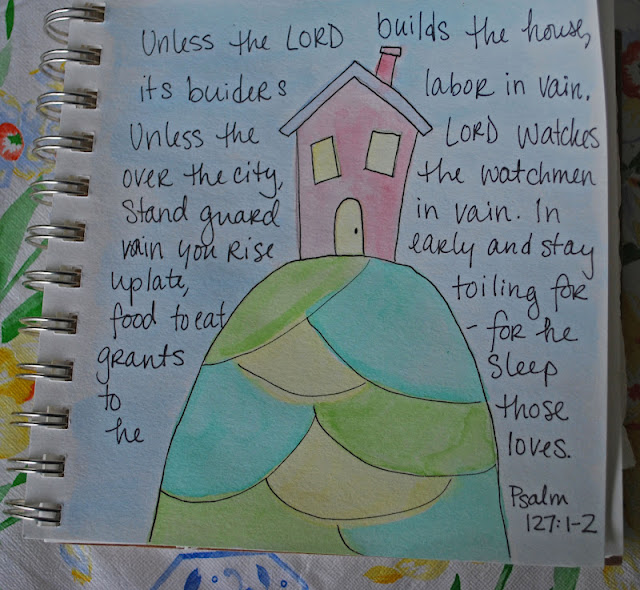 Unless the LORD builds the house,
its buiders labor in vain.
Unless the LORD watches
over the city, the watchmen
Stand guard in vain. In
vain you rise early and stay
up late, toiling for
food to eat - for he
grants sleep
to those
he loves.
Psalm
127:1-2